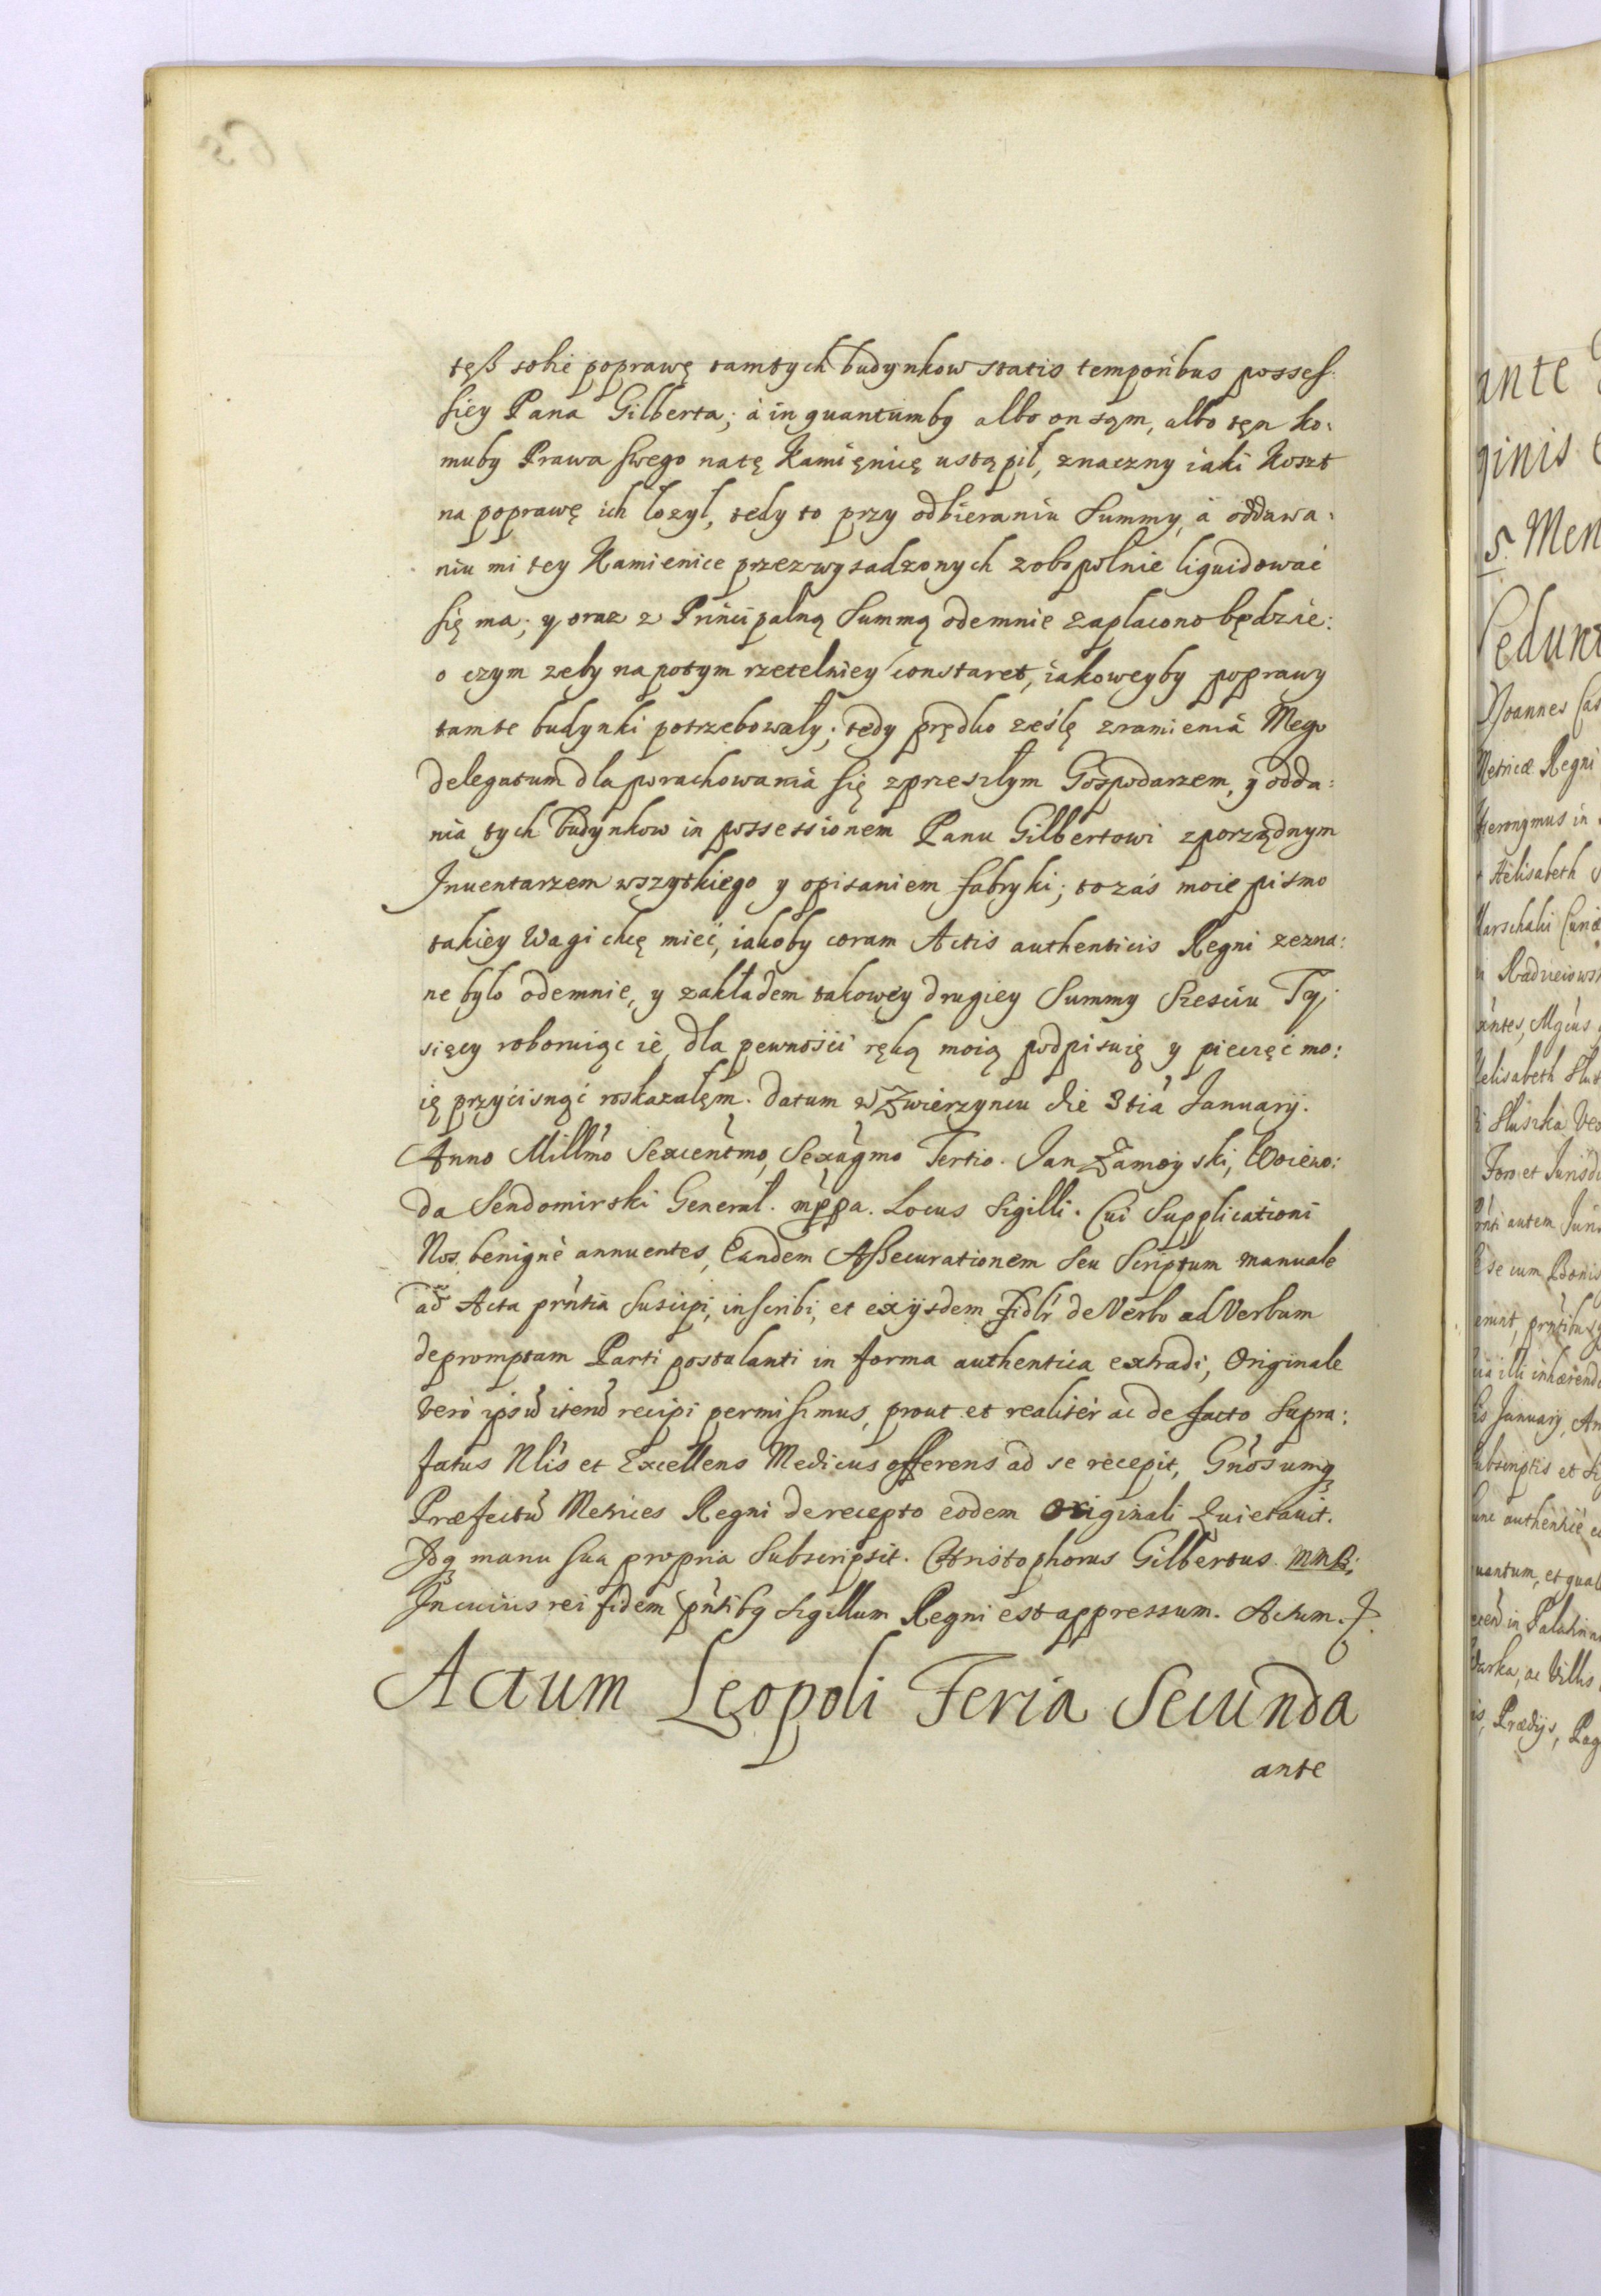 tęß sobie poprawę tamtych budynkow statis temporibus possess
siey Pana Gilberta; à in quantumby albo on sąm, albo tęn ko:
muby Prawa swego natę Kamięnicę ustąpił, znaczny iaki Koszt
na poprawę ich łozył, tedy to przy odbieraniu Summy, à oddawa:
niu mi tey Kamienice przez wysadzonych zobopolnie liquidować
się ma; y oraz z Principalną Summą odemnie zapłacono będzie:
o czym zeby napotym rzetelniey constaret, iakoweyby poprawy
tamte budynki potrzebowały; tedy prędko ześlę zramienia Mego
delegatum dla porachowania się zprzeszłym Gospodarzem, y odda:
nia tych budynkow in possessionem Panu Gilbertowi zporządnym
Inuentarzem wszytkiego y opisaniem fabryki; to zaś moie pismo
takiey Wagi chcę mieć, iakoby coram Actis authenticis Regni zezna:
ne było odemnie, y zakładem takowey drugiey Summy Szesciu Ty:
sięcy roboruiąc ie, dla pewności ręką moią podpisuię y pieczęć mo:
ię przycisnąć roskazałęm. Datum w Zwierzyncu die 3tia January.
Anno Millmo Sexcentmo, Sexagmo Tertio. Jan Zamoyski, Woiewo:
da Sendomirski General. mppa. Locus Sigilli. Cui Supplicationi
Nos benignè annuentes, Eandem Assecurationem Seu Scriptum manuale
ad Acta prntia Suscipi, inscribi, et ex ijsdem fidlr de Verbo ad Verbum
depromptam Parti postulanti in forma authentica extradi, Originale
verò ipsu itend recipi permisimus, prout et realitèr ac de facto Supra:
fatus Nlis et Excellens Medicus offerens ad se recepit, Gnosumq
Præfectu Metrices Regni de recepto eodem Originali Quietauit.
Idq manu sua propria Subscripsit. Christophorus Gilbertus. mmp:
In cuius rei fidem pntibq Sigillum Regni est appressum. Actum.
Actum Leopoli Feria Secunda
ante